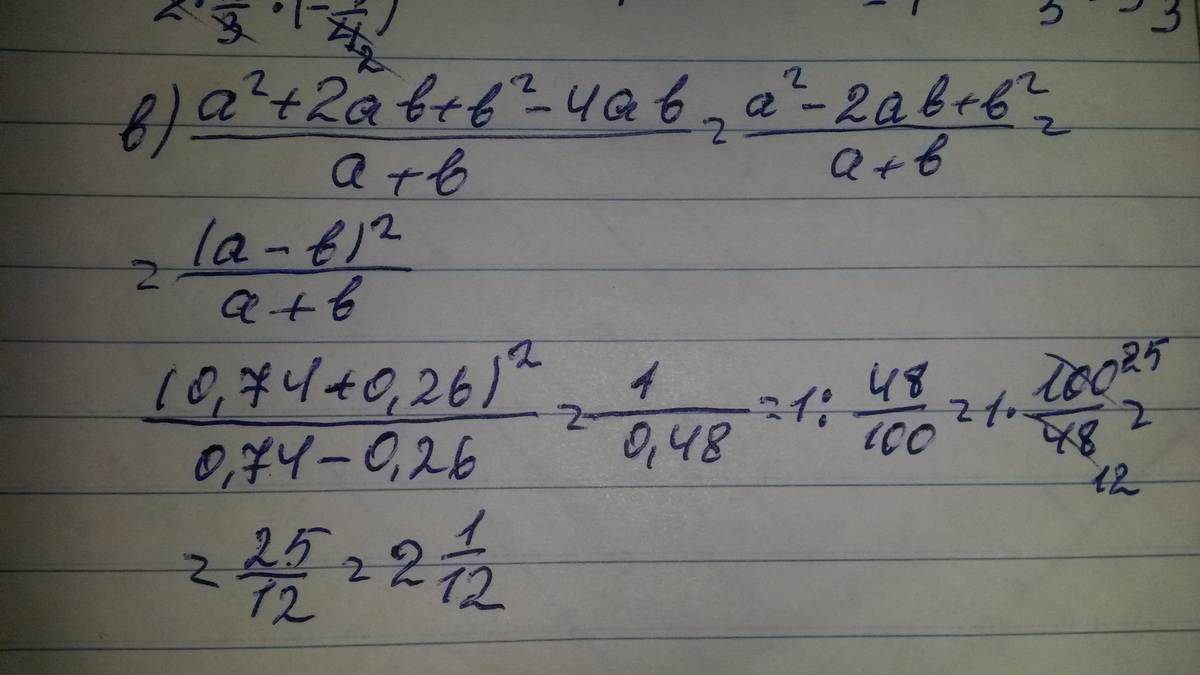 в) (a² + 2ab + b² - 4ab)/(a + b) = (a² - 2ab + b²)/(a + b) =
= (a - b)²/(a + b)
(0,74 + 0,26)²/(0,74 - 0,26) = 1/0,48 = 1 : 48/100 = 1 · 100 25/48 12 =
= 25/12 = 2 1/12